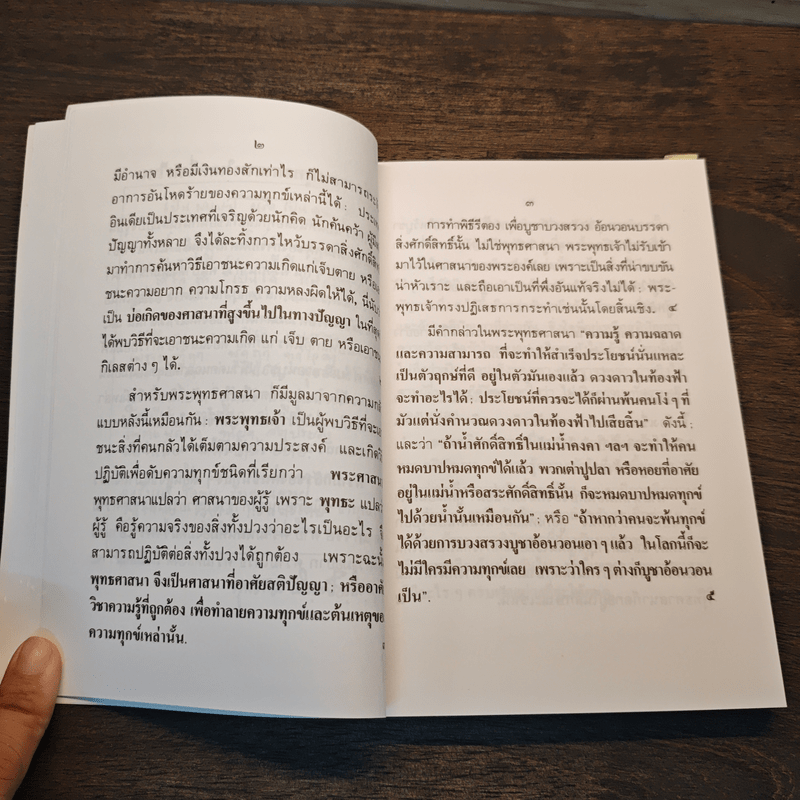 ๒
มีอำนาจ หรือมีเงินทองสักเท่าไร ก็ไม่สามารถระงับ
อาการอันโหดร้ายของความทุกข์เหล่านี้ได้ : ประเทศ
อินเดียเป็นประเทศที่เจริญด้วยนักคิด นักค้นคว้า ผู้มี
ปัญญาทั้งหลาย จึงได้ละทิ้งการไหว้บรรดาสิ่งศักดิ์สิทธิ์
มาทำการค้นหาวิธีเอาชนะความเกิดแก่เจ็บตาย หรือ
ชนะความอยาก ความโกรธ ความหลงผิดให้ได้, นี่นับ
เป็น บ่อเกิดของศาสนาที่สูงขึ้นไปในทางปัญญา ในที่สุด
ได้พบวิธีที่จะเอาชนะความเกิด แก่ เจ็บ ตาย หรือเอาชนะ
กิเลสต่าง ๆ ได้.
สำหรับพระพุทธศาสนา ก็มีมูลมาจากความกลัว
แบบหลังนี้เหมือนกัน : พระพุทธเจ้า เป็นผู้พบวิธีที่จะ
ชนะสิ่งที่คนกลัวได้เต็มตามความประสงค์ และเกิด
ปฏิบัติเพื่อดับความทุกข์ชนิดที่เรียกว่า พระศาสนา
พุทธศาสนาแปลว่า ศาสนาของผู้รู้ เพราะ พุทธะ แปลว่า
ผู้รู้ คือรู้ความจริงของสิ่งทั้งปวงว่าอะไรเป็นอะไร
สามารถปฏิบัติต่อสิ่งทั้งปวงได้ถูกต้อง เพราะฉะนั้น
พุทธศาสนา จึงเป็นศาสนาที่อาศัยสติปัญญา ; หรืออาศัย
วิชาความรู้ที่ถูกต้อง เพื่อทำลายความทุกข์และต้นเหตุของ
ความทุกข์เหล่านั้น.
๓
การทำพิธีรีตอง เพื่อบูชาบวงสรวง อ้อนวอนบรรดา
สิ่งศักดิ์สิทธิ์นั้น ไม่ใช่พุทธศาสนา พระพุทธเจ้าไม่รับเข้า
มาไว้ในศาสนาของพระองค์เลย เพราะเป็นสิ่งที่น่าขบขัน
น่าหัวเราะ และถือเอาเป็นที่พึ่งอันแท้จริงไม่ได้ : พระ-
พุทธเจ้าทรงปฏิเสธการกระทำเช่นนั้นโดยสิ้นเชิง. ๔
มีคำกล่าวในพระพุทธศาสนา “ความรู้ ความฉลาด
และความสามารถ ที่จะทำให้สำเร็จประโยชน์นั่นแหละ
เป็นตัวฤกษ์ที่ดี อยู่ในตัวมันเองแล้ว ดวงดาวในท้องฟ้า
จะทำอะไรได้ : ประโยชน์ที่ควรจะได้ก็ผ่านพ้นคนโง่ ๆ ที่
มัวแต่นั่งคำนวณดวงดาวในท้องฟ้าไปเสียสิ้น” ดังนี้ ;
และว่า “ถ้าน้ำศักดิ์สิทธิ์ในแม่น้ำคงคา ฯลฯ จะทำให้คน
หมดบาปหมดทุกข์ได้แล้ว พวกเต่าปูปลา หรือหอยที่อาศัย
อยู่ในแม่น้ำหรือสระศักดิ์สิทธิ์นั้น ก็จะหมดบาปหมดทุกข์
ไปด้วยน้ำนั้นเหมือนกัน” ; หรือ “ถ้าหากว่าคนจะพ้นทุกข์
ได้ด้วยการบวงสรวงบูชาอ้อนวอนเอา ๆ แล้ว ในโลกนี้ก็จะ
ไม่มีใครมีความทุกข์เลย เพราะว่าใคร ๆ ต่างก็บูชาอ้อนวอน
เป็น”. ๕